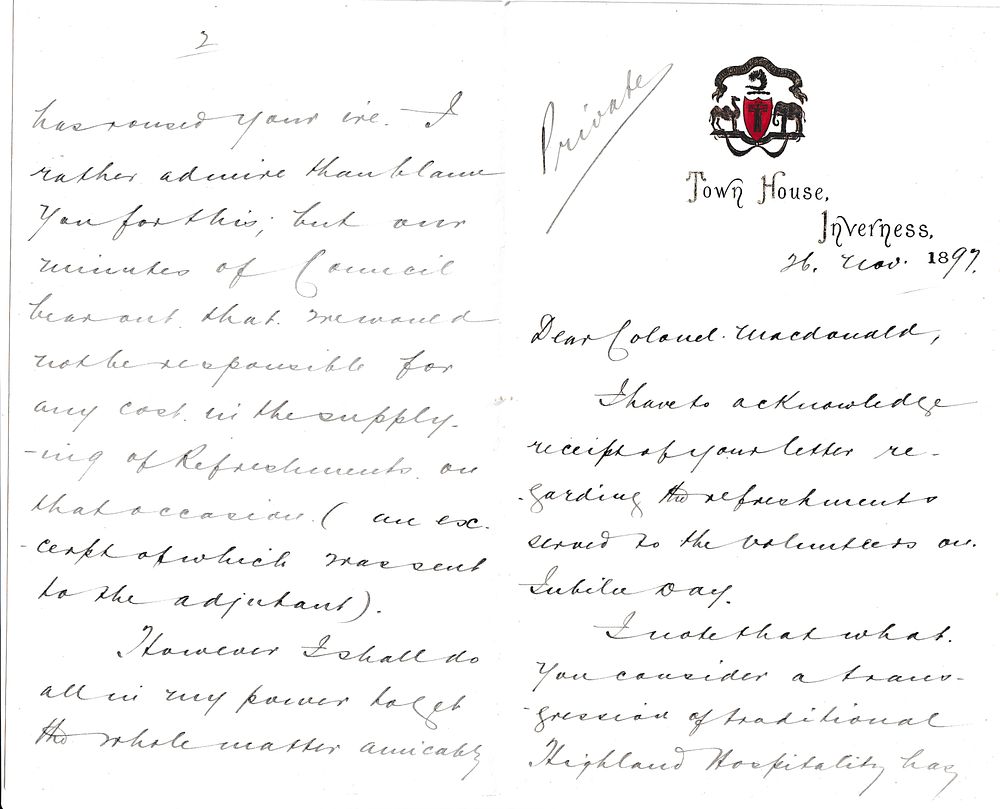 Private
Town House,
Inverness,
26. Nov. 1897.
Dear Colonel. Macdonald,
I have to acknowledge
receipt of your letter re-
-garding the refreshments
served to the Volunteers on.
Jubilee Day.
I note that what.
you consider a trans-
-gression of traditional
Highland Hospitality has
2
has roused your ire. I
rather admire than blame
you for this; but our
minutes of Council
bear out. that. we would
not be responsible for
any cost. in the supply-
-ing of Refreshments. on
that occasion. ( an exc.
-cerpt of which was sent
to the adjutant).
However I shall do
all in my power to get
the whole matter amicably